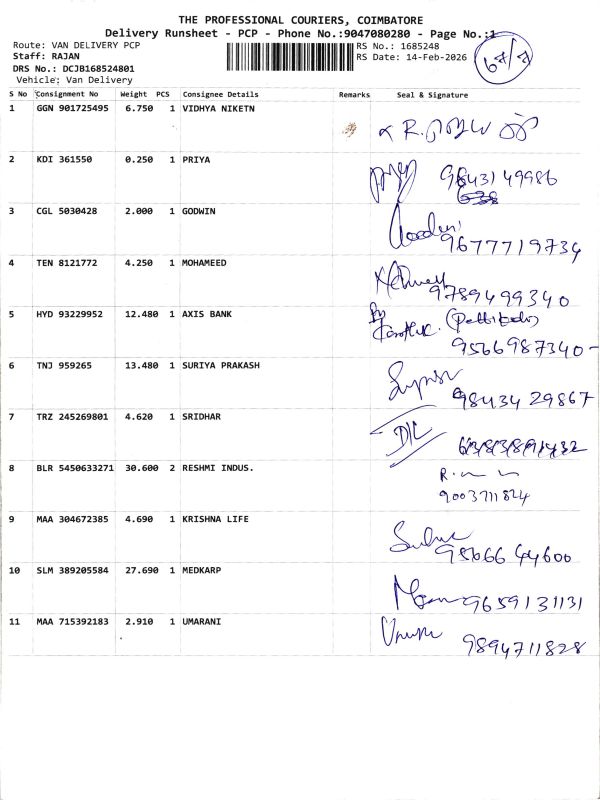 THE PROFESSIONAL COURIERS, COIMBATORE
Delivery Runsheet - PCP - Phone No.:9047080280 - Page No.:1
Route: VAN DELIVERY PCP
RS No.: 1685248
Staff: RAJAN
RS Date: 14-Feb-2026
DRS No.: DCJB168524801
Vehicle: Van Delivery
S No Consignment No Weight PCS Consignee Details Remarks Seal & Signature
1 GGN 901725495 6.750 1 VIDHYA NIKETN
2 KDI 361550 0.250 1 PRIYA
9843149986
3 CGL 5030428 2.000 1 GODWIN
9677719734
4 TEN 8121772 4.250 1 MOHAMEED
9789499340
5 HYD 93229952 12.480 1 AXIS BANK
9566987340-
6 TNJ 959265 13.480 1 SURIYA PRAKASH
98434 29867
7 TRZ 245269801 4.620 1 SRIDHAR
8 BLR 5450633271 30.600 2 RESHMI INDUS.
9003711824
9 MAA 304672385 4.690 1 KRISHNA LIFE
95666 44600
10 SLM 389205584 27.690 1 MEDKARP
9659131131
11 MAA 715392183 2.910 1 UMARANI
9894711828